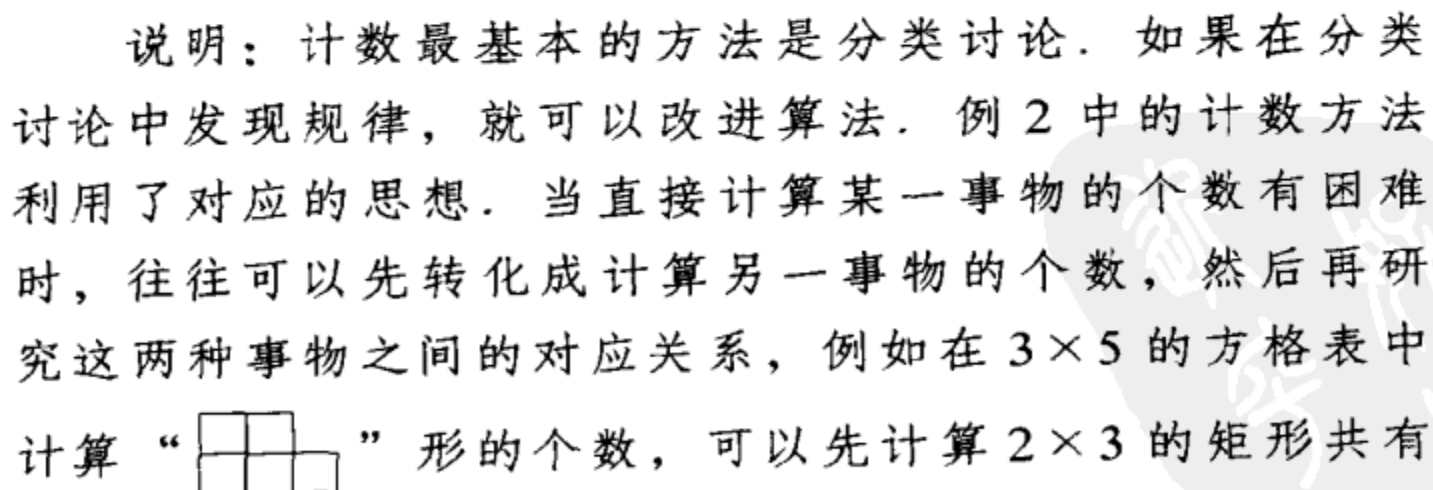 说明：计数最基本的方法是分类讨论．如果在分类
讨论中发现规律，就可以改进算法．例 2 中的计数方法
利用了对应的思想．当直接计算某一事物的个数有困难
时，往往可以先转化成计算另一事物的个数，然后再研
究这两种事物之间的对应关系，例如在 3×5 的方格表中
计算“ ”形的个数，可以先计算 2×3 的矩形共有